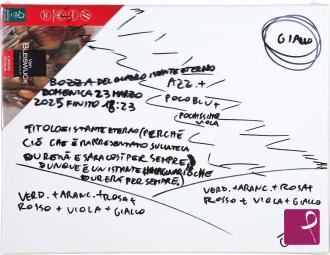 GIALLO
VAN BLEISWIJCK
BOZZA DEL QUADRO ISTANTE ETERNO
DOMENICA 23 MARZO
2025 FINITO 18:23
AZZ. +
POCO BLU +
POCHISSIMO
VIOLA
TITOLO: ISTANTE ETERNO (PERCHÉ
CIÒ CHE È RAPPRESENTATO SULLA TELA
DURERÀ E SARÀ COSÌ PER SEMPRE,
DUNQUE È UN ISTANTE IMMAGINARIO CHE
DURERÀ PER SEMPRE)
VERD. + ARANC. + ROSA +
ROSSO + VIOLA + GIALLO
VERD. + ARANC. + ROSA +
ROSSO + VIOLA + GIALLO